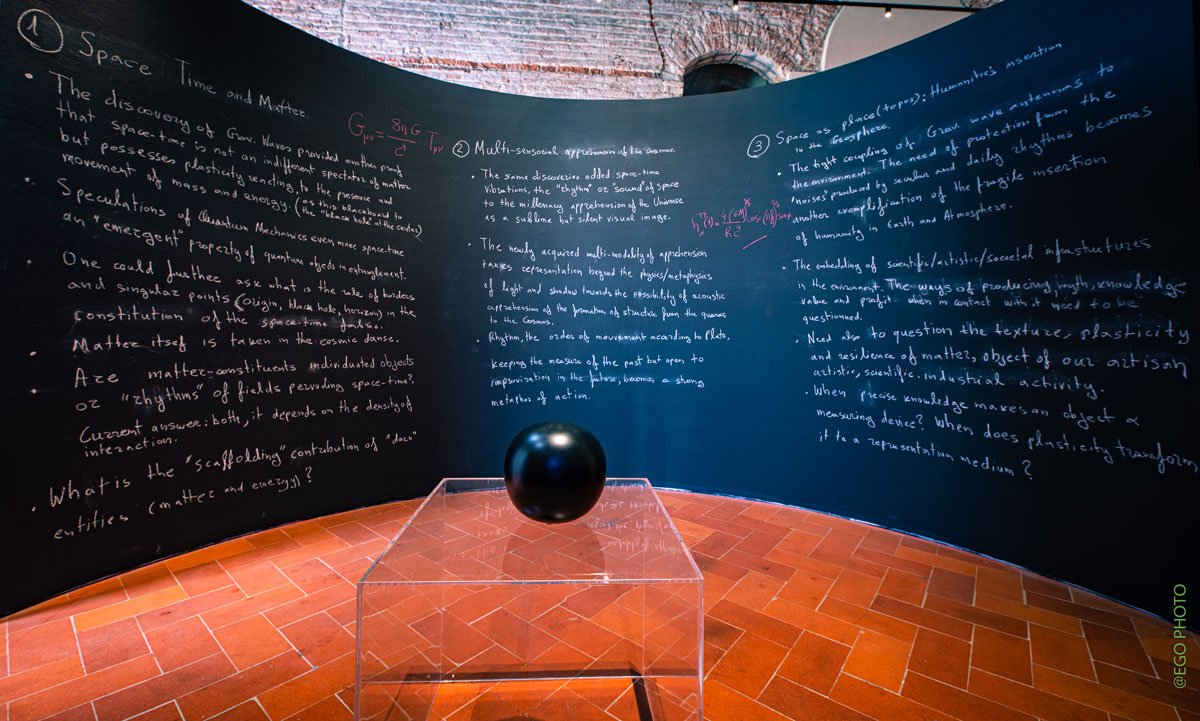 1 Space Time and Matter
• The discovery of Grav. Waves provided another proof
that space-time is not an indifferent spectator of matter
but possesses plasticity reacting to the presence and
movement of mass and energy. (as this blackboard to
(the "black hole" at the center)
Gμν = 8πG/c⁴ Tμν
• Speculations of Quantum Mechanics even more space-time
an "emergent" property of quantum objects in entanglement.
• One could further ask what is the role of borders
and singular points (origin, black hole, horizon) in the
constitution of the space-time fabric.
• Matter itself is taken in the cosmic danse.
• Are matter-constituents individuated objects
or "rhythms" of fields pervading space-time?
Current answer: both, it depends on the density of
interaction.
• What is the "scaffolding" contribution of "dark"
entities (matter and energy)?
2 Multi-sensorial apprehension of the cosmos.
• The same discoveries added space-time
vibrations, the "rhythm" or "sound" of space
to the millenary apprehension of the Universe
as a sublime but silent visual image.
• The newly acquired multi-modality of apprehension
takes representation beyond the physics/metaphysics
of light and shadow towards the possibility of acoustic
apprehension of the formation of structure from the quarks
to the Cosmos.
• Rhythm, the order of movement according to Plato,
keeping the measure of the past but open to
improvisation in the future, becomes, a strong
metaphor of action.
3 Space as place (topos): Humanities insertion
in the Geosphere.
• The tight coupling of Grav. wave antennas to
the environment. The need of protection from the
"noises" produced by secular and daily rhythms becomes
another exemplification of the fragile insertion
of humanity in Earth and Atmosphere.
• The embedding of scientific/artistic/societal infrastructures
in the environment. The ways of producing myth, knowledge
value and profit when in contact with it need to be
questionned.
• Need also to question the texture, plasticity
and resilience of matter, object of our artisan
artistic, scientific, industrial activity.
• When precise knowledge makes an object a
measuring device? When does plasticity transform
it to a representation medium?
@EGO PHOTO